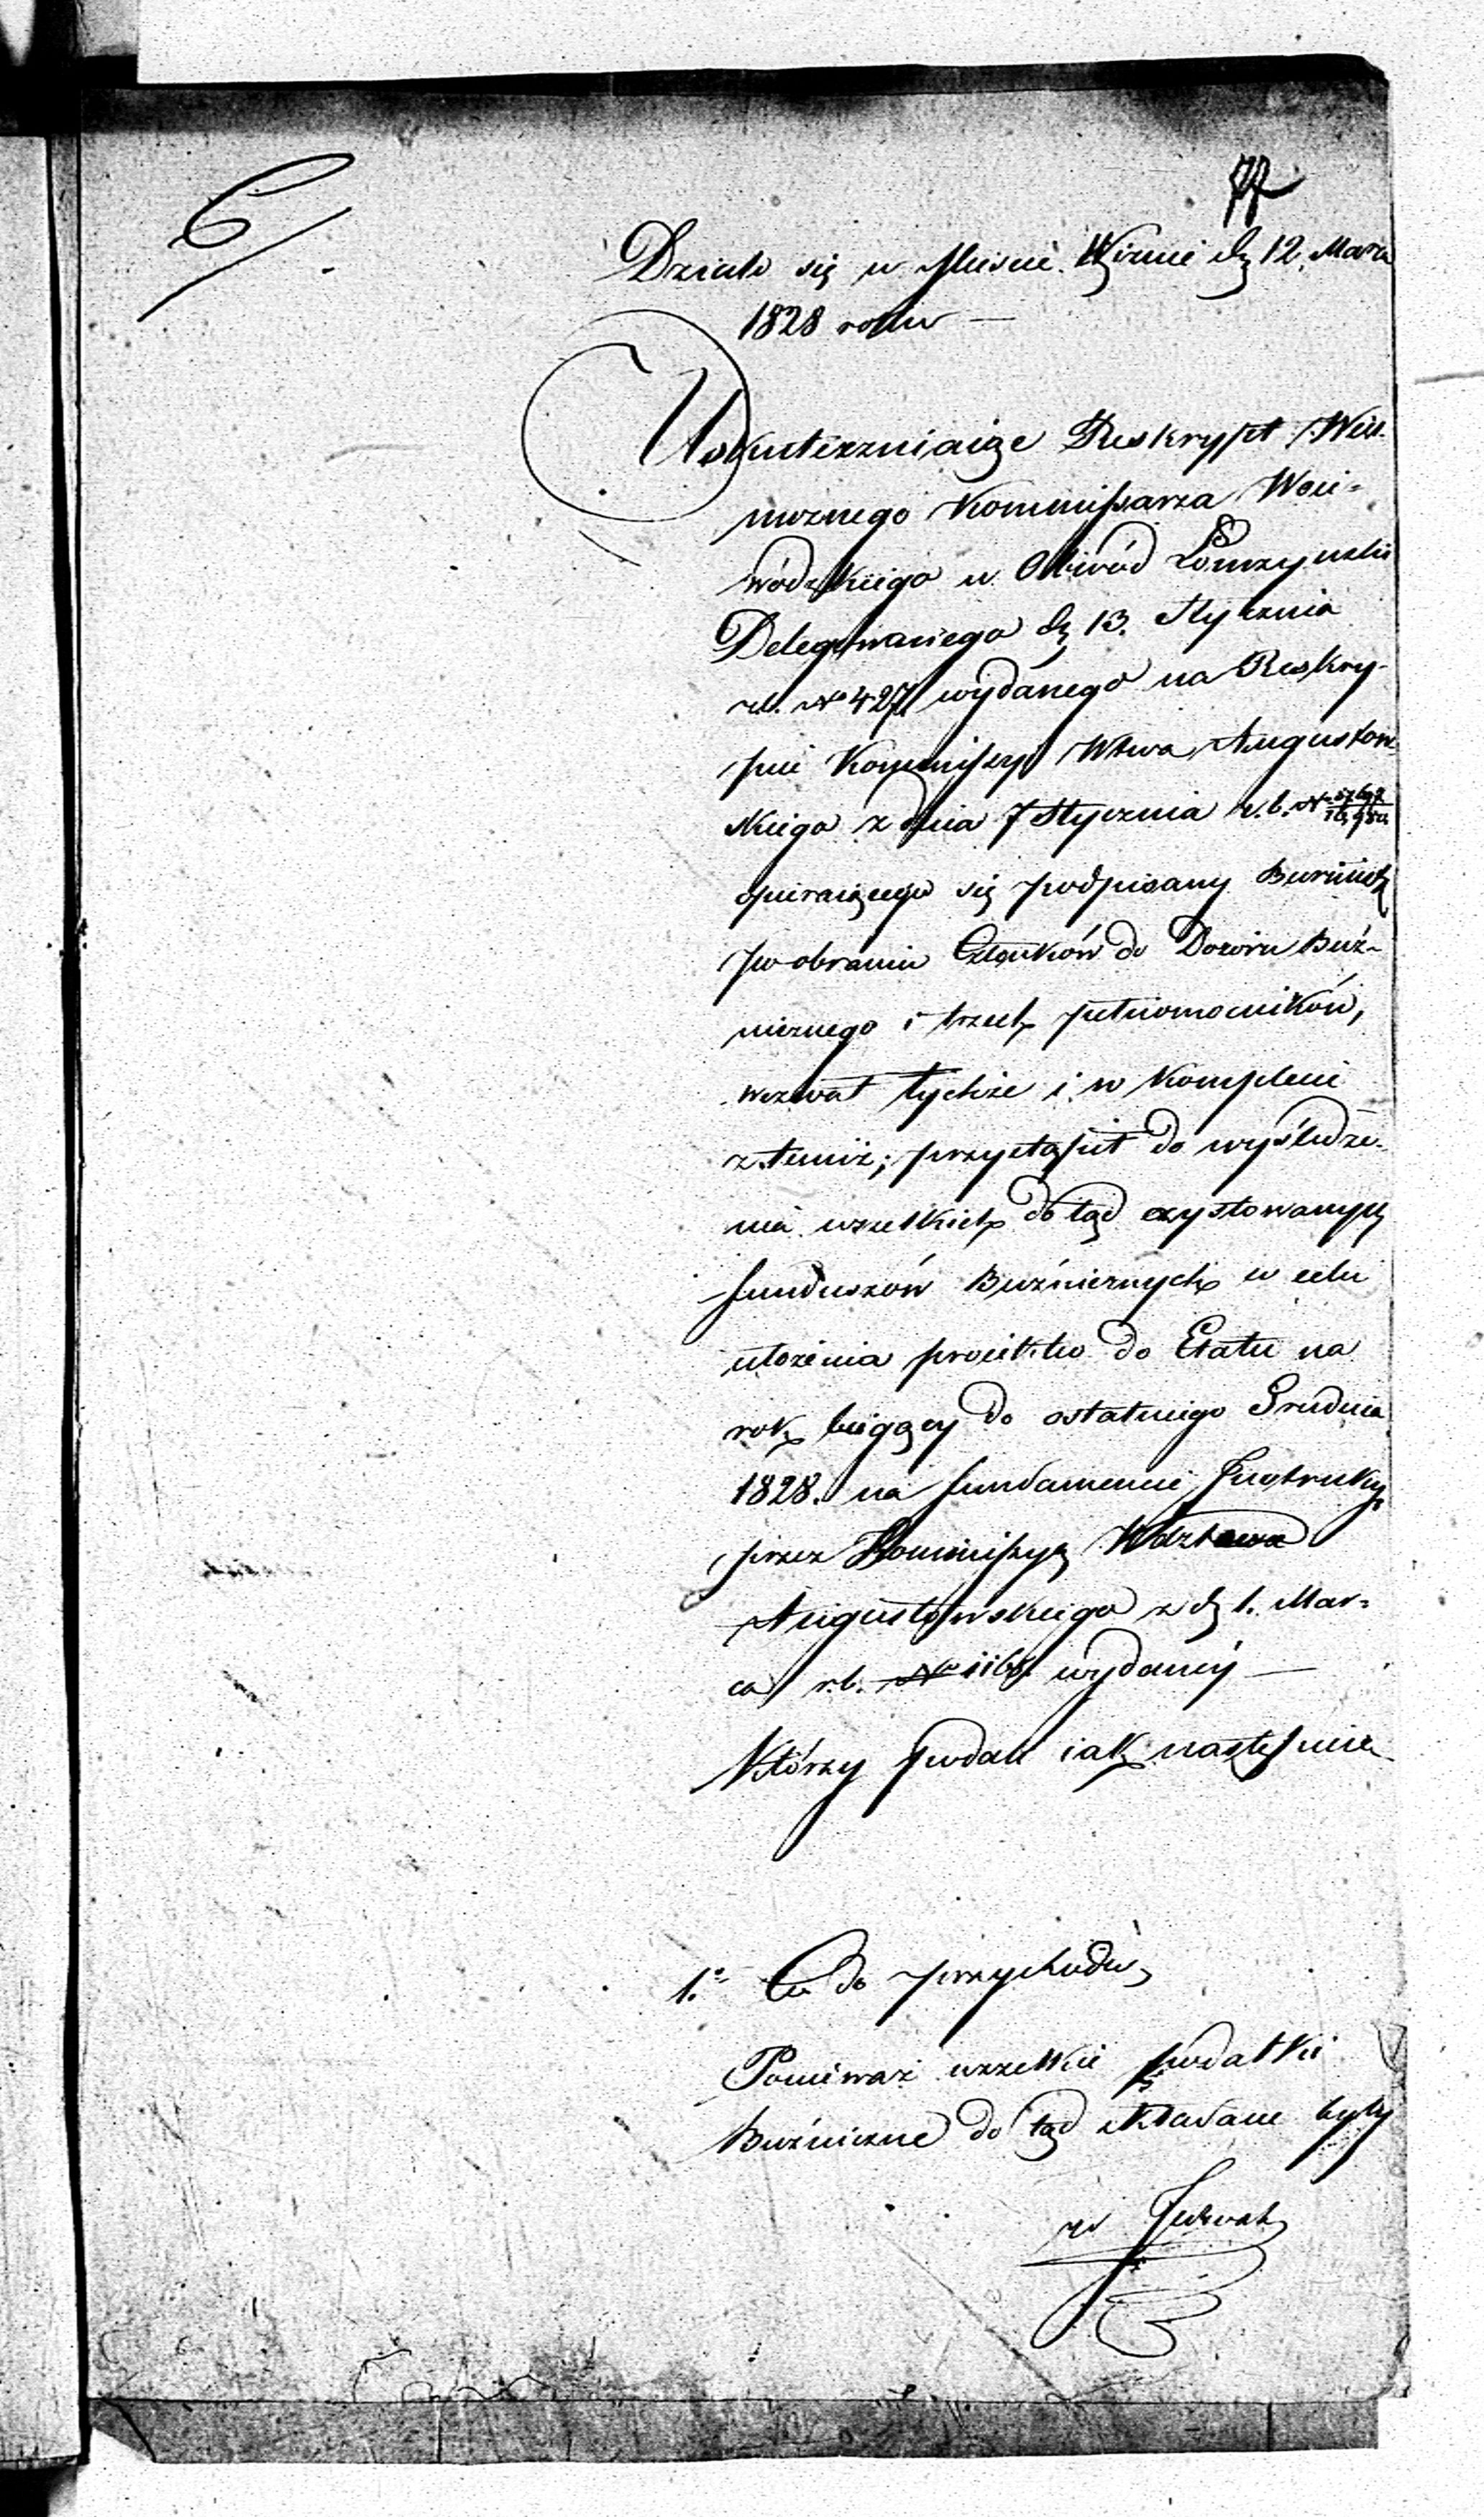 77
Działo się w Mieście Wiznie dę 12. Marca
1828 roku —
Uskuteczniaiąc Reskrypt Wiel.
możnego Kommissarza Woie=
wódzkiego w Obwód Łomżyński
Delegowanego dę 13. Stycznia
r.b. No 427 wydanego na Reskry-
pcie Kommissyi Wtwa Augustow
skiego z dnia 7 Stycznia r.b. No
opieraiącego się podpisany Burmistrz
po obraniu Członków do Dozoru Buź-
nicznego i trzech pełnomocników,
wezwał tychże i w Komplecie
z temiż; przystąpił do wyśledze-
nia wszelkich do tąd exystowanych
funduszów Buźnicznych w celu
ułożenia proiektu do Etatu na
rok bieżący do ostatniego Grudnia
1828. na fundamencie Instrukcyi
przez Kommissyę Wdztwa
Augustowskiego z dę 1. Mar=
ca r.b. No wydaney —
Którzy podali iak następuie
1.o Co do przychodu,
Ponieważ wszelkie podatki
Buźniczne do tąd składane były